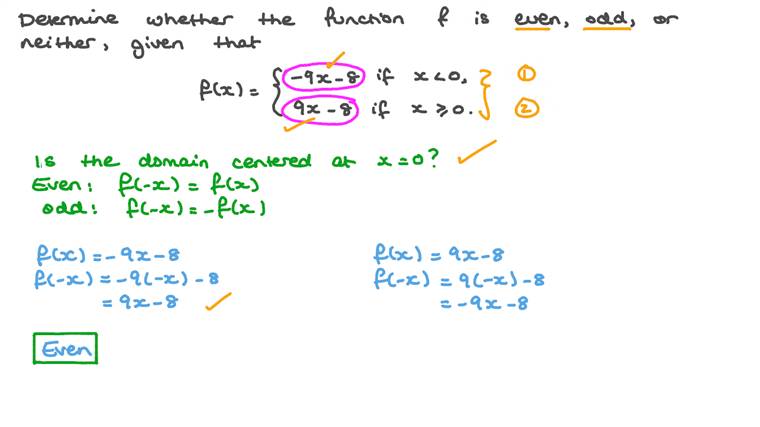 Determine whether the function f is even, odd, or
neither, given that
f(x) = { -9x-8 if x<0, ①
9x-8 if x⩾0. ②
Is the domain centered at x=0?
Even: f(-x) = f(x)
odd: f(-x) = -f(x)
f(x) = -9x-8
f(-x) = -9(-x)-8
= 9x-8
f(x) = 9x-8
f(-x) = 9(-x)-8
= -9x-8
Even